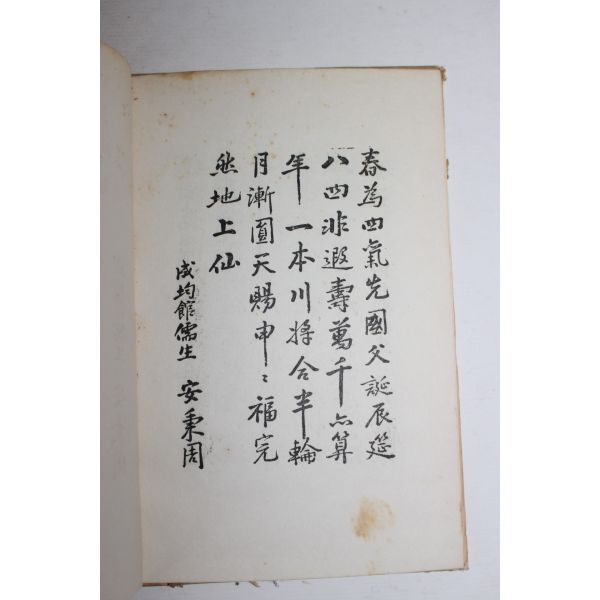 春為四氣先國父誕辰筵
八四非遐壽萬千亦算
年一本川將合半輪
月漸圓天賜申〻福完
然地上仙
成均館儒生 安秉周